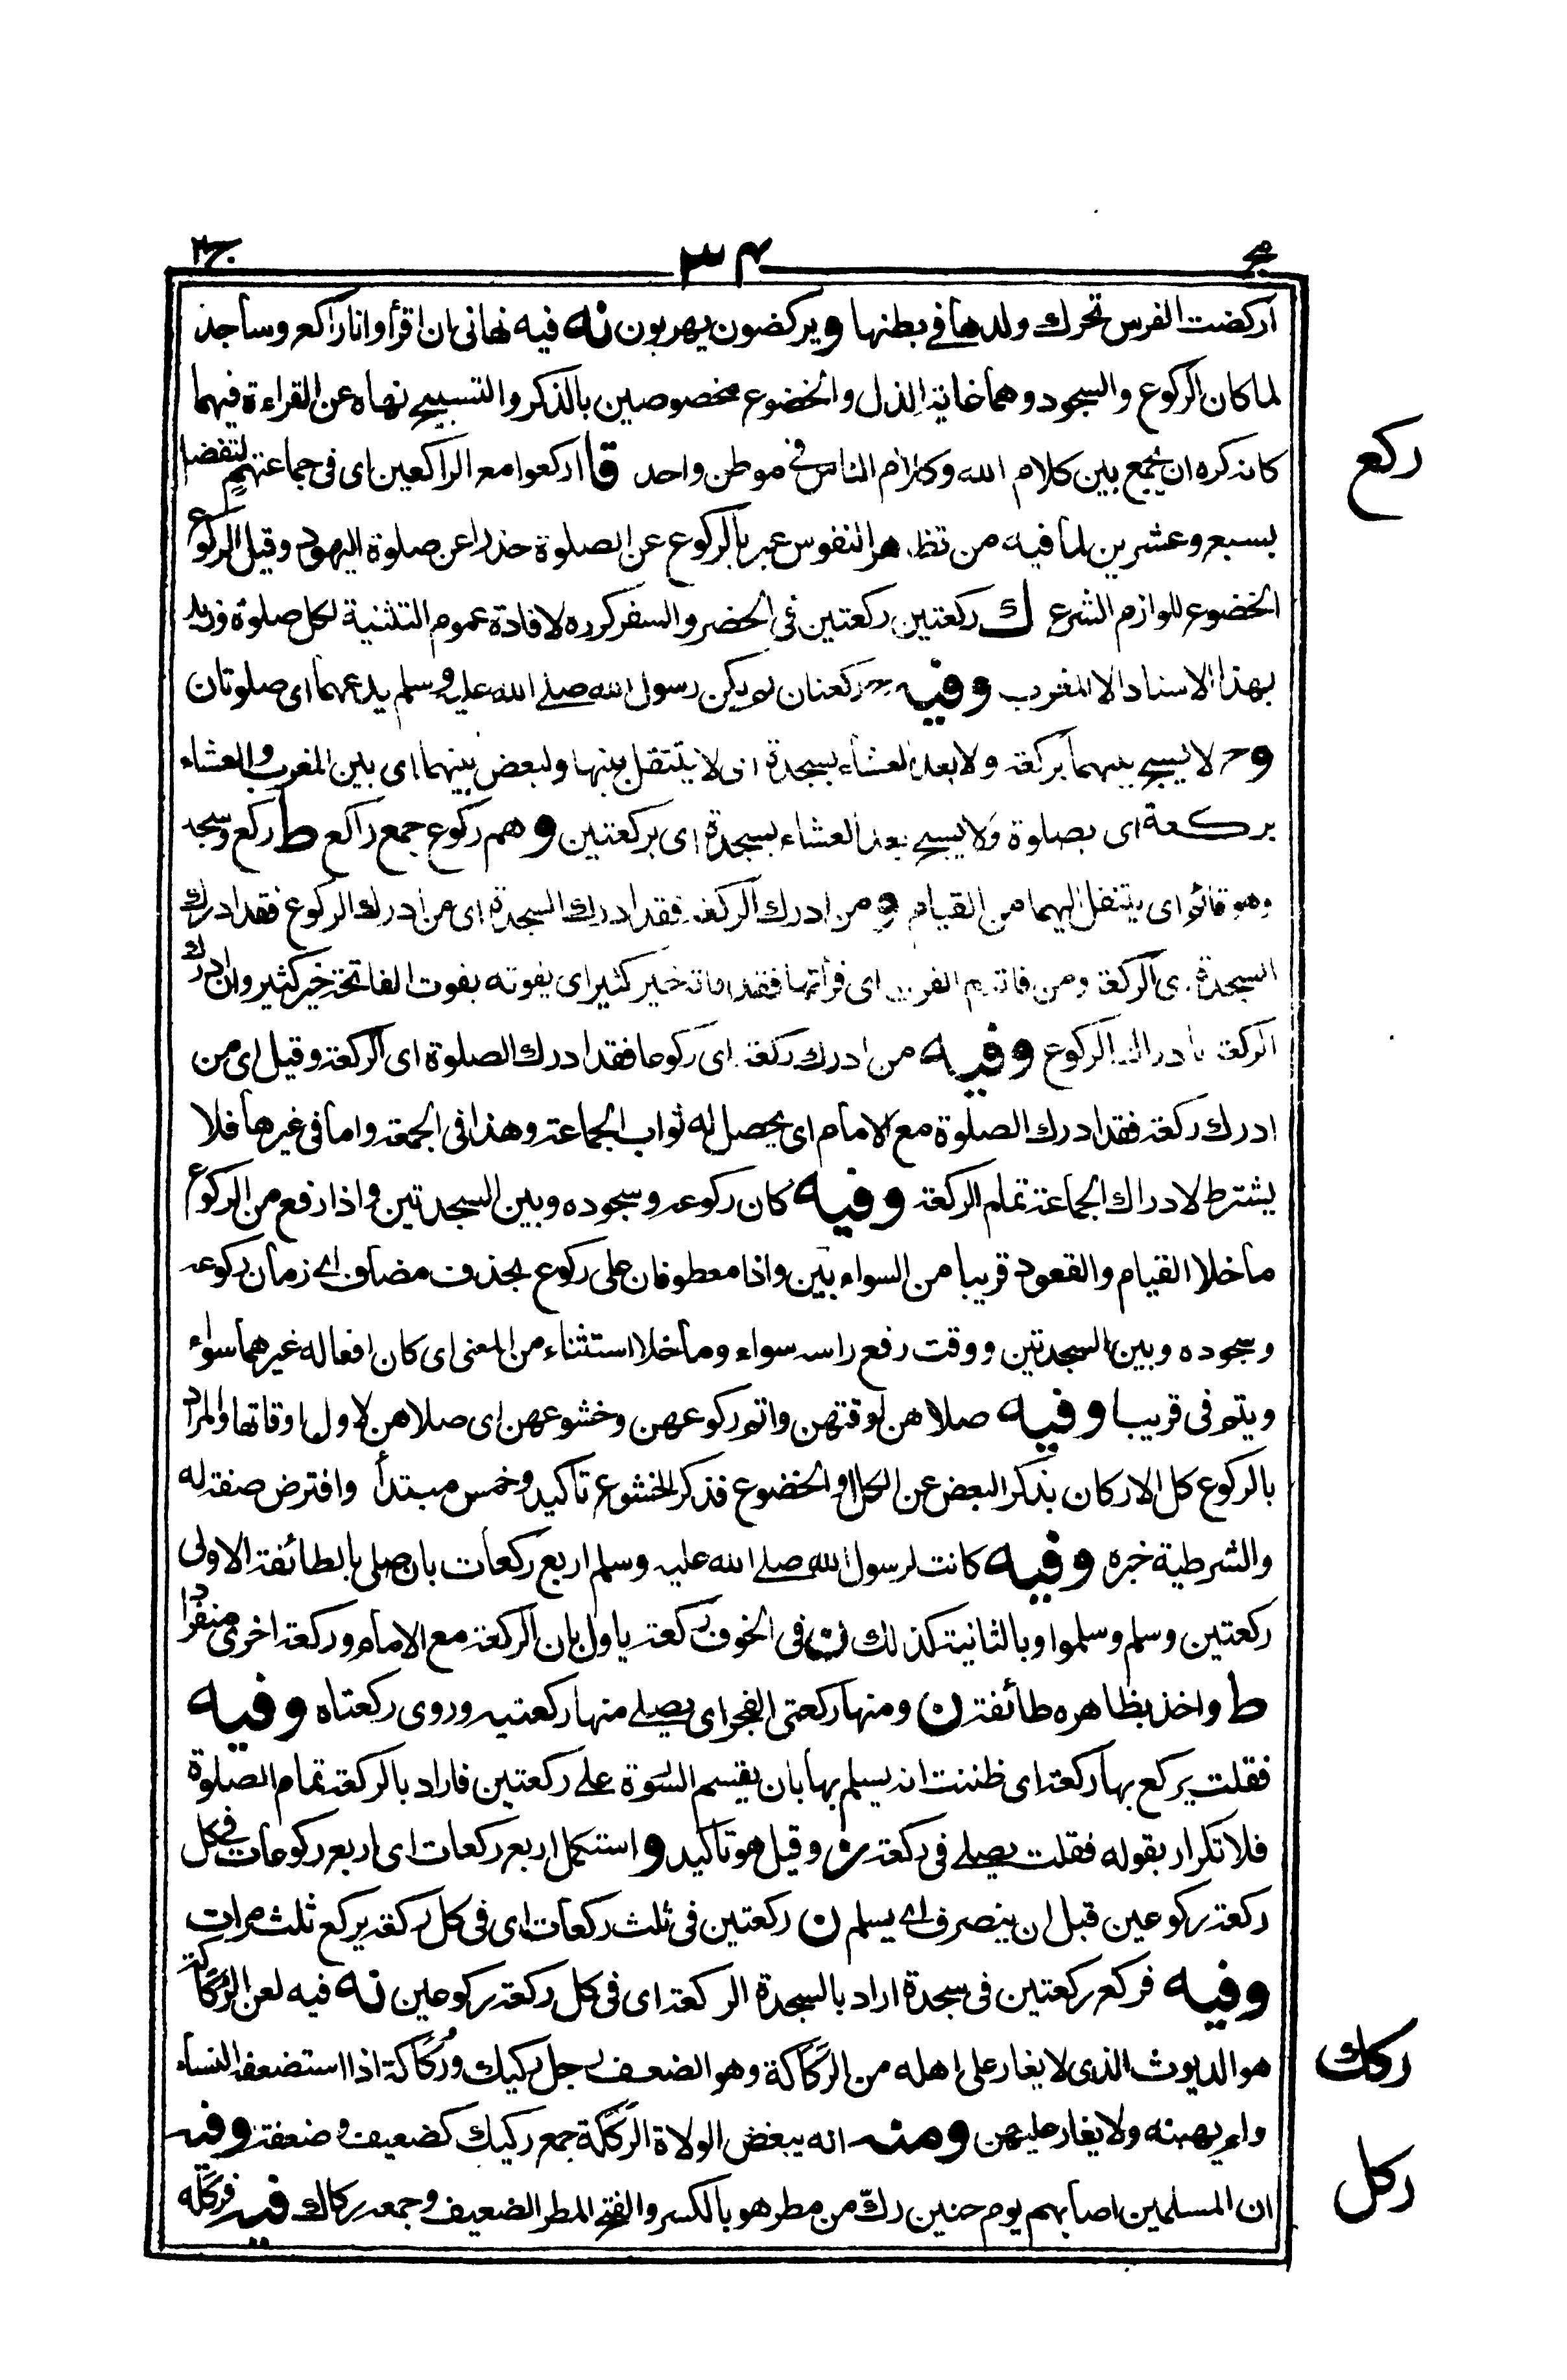 مج ٣٤ ج٢
اركضت الفرس تحرك ولدها في بطنها و يركضون يهربون نه فيه نهاني ان اقرأ وانا راكع وساجد
لما كان الركوع والسجود وهما غاية الذل والخضوع مخصوصين بالذكر والتسبيح نهاه عن القراءة فيهما
ركع
كانه كره ان يجمع بين كلام الله وكلام الناس في موطن واحد قا اركعوا مع الراكعين اى في جماعتهم لتفضل
بسبع وعشرين لما فيه من تظاهر النفوس عبر بالركوع عن الصلوة حذرا عن صلوة اليهود وقيل الركوع
الخضوع للوازم الشرع ك ركعتين ركعتين في الحضر والسفر كرره لافادة عموم التثنية لكل صلوة وزيد
بهذا الاسناد الا المغرب وفيه ركعتان لم يكن رسول الله صلى الله عليه وسلم يدعهما اى صلوتان
وح لا يسبح بينهما بركعة ولا بعد العشاء بسجدة اى لا يتنفل بينها ولبعض بينهما اى بين المغرب والعشاء
بركعة اى بصلوة ولا يسبح بعد العشاء بسجدة اى بركعتين و هم ركوع جمع راكع ط ركع وسجد
وهو قائم اى ينتقل اليهما من القيام و من ادرك الركعة فقد ادرك السجدة اى من ادرك الركوع فقد ادرك
السجدة اى الركعة ومن فاته ام القرآن اى قرأتها فقد فاته خير كثير اى يفوته بفوت الفاتحة خير كثير وان ادرك
الركعة بادراك الركوع وفيه من ادرك ركعة اى ركوعا فقد ادرك الصلوة اى الركعة وقيل اى من
ادرك ركعة فقد ادرك الصلوة مع الامام اى يحصل له ثواب الجماعة وهذا في الجمعة واما في غيرها فلا
يشترط لادراك الجماعة تمام الركعة وفيه كان ركوعه وسجوده وبين السجدتين واذا رفع من الركوع
ما خلا القيام والقعود قريبا من السواء بين واذا معطوفان على ركوع بحذف مضاف اى زمان ركوعه
وسجوده وبين السجدتين ووقت رفع راسه سواء وما خلا استثناء من المعنى اى كان افعاله غيرهما سواء
ويتم في قريبا وفيه صلاهن لوقتهن واتم ركوعهن وخشوعهن اى صلاهن لاول اوقاتها والمراد
بالركوع كل الاركان بذكر البعض عن الكل او الخضوع فذكر الخشوع تاكيد وخمس مبتدأ وافترض صفة له
والشرطية خبره وفيه كانت لرسول الله صلى الله عليه وسلم اربع ركعات بان صلى بالطائفة الاولى
ركعتين وسلم وسلموا وبالثانية كذلك ن في الخوف ركعة ياول بان الركعة مع الامام وركعة اخرى منفردا
ط واخذ بظاهره طائفة ن ومنها ركعتى الفجر اى يصلى منها ركعتيه وروى ركعتاه وفيه
فقلت يركع بها ركعة اى ظننت انه يسلم بها بان يقسم السورة على ركعتين فاراد بالركعة تمام الصلوة
فلا تكرار بقوله فقلت يصلى في ركعة ن وقيل هو تاكيد و استكمل اربع ركعات اى اربع ركوعات في كل
ركعة ركوعين قبل ان ينصرف اى يسلم ن ركعتين في ثلث ركعات اى في كل ركعة يركع ثلث مرات
وفيه فركع ركعتين في سجدة اراد بالسجدة الركعة اى في كل ركعة ركوعين نه فيه لعن الركاكة
ركك
هو الديوث الذى لا يغار على اهله من الركاكة وهو الضعف رجل ركيك وركاكة اذا استضعفه النساء
ولم يهبنه ولا يغار عليهن ومنه انه يبغض الولاة الركَكَة جمع ركيك كضعيف وضعفة وفيه
ركل
ان المسلمين اصابهم يوم حنين ركّ من مطر هو بالكسر والفتح المطر الضعيف وجمعه ركاك فيه فركله